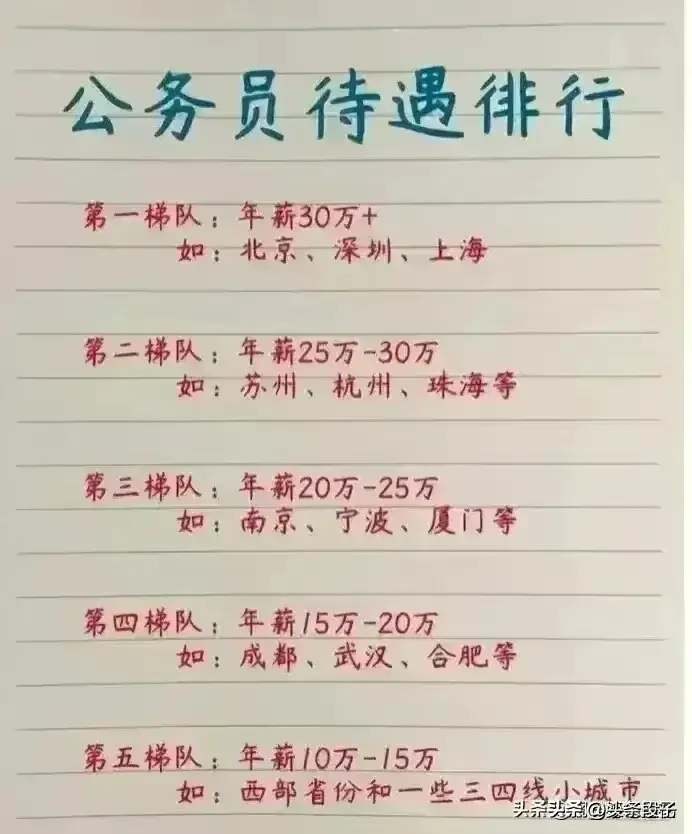 公务员待遇徘行
第一梯队：年薪30万+
如：北京、深圳、上海
第二梯队：年薪25万-30万
如：苏州、杭州、珠海等
第三梯队：年薪20万-25万
如：南京、宁波、厦门等
第四梯队：年薪15万-20万
如：成都、武汉、合肥等
第五梯队：年薪10万-15万
如：西部省份和一些三四线小城市
头条